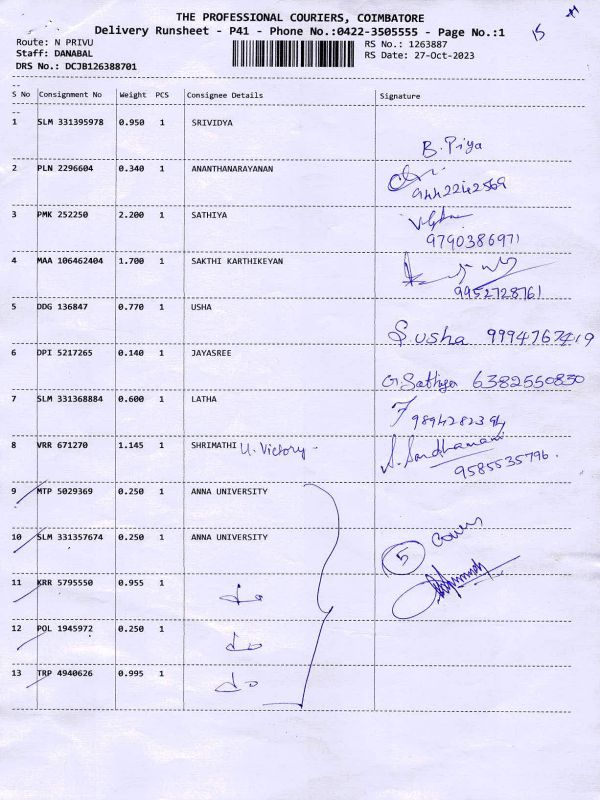 THE PROFESSIONAL COURIERS, COIMBATORE
Delivery Runsheet - P41 - Phone No.:0422-3505555 - Page No.:1
15
Route: N PRIVU
RS No.: 1263887
Staff: DANABAL
RS Date: 27-Oct-2023
DRS No.: DCJB126388701
S No Consignment No Weight PCS Consignee Details Signature
1 SLM 331395978 0.950 1 SRIVIDYA
B. Piya
2 PLN 2296604 0.340 1 ANANTHANARAYANAN
9442242569
3 PMK 252250 2.200 1 SATHIYA
9790386971
4 MAA 106462404 1.700 1 SAKTHI KARTHIKEYAN
9952728761
5 DDG 136847 0.770 1 USHA
S usha 9994767419
6 DPI 5217265 0.140 1 JAYASREE
G. Sathiya 6382550830
7 SLM 331368884 0.600 1 LATHA
8 VRR 671270 1.145 1 SHRIMATHI U. Victory -
9585535796.
9 MTP 5029369 0.250 1 ANNA UNIVERSITY
10 SLM 331357674 0.250 1 ANNA UNIVERSITY
5 Covers
11 KRR 5795550 0.955 1 do
12 POL 1945972 0.250 1 do
13 TRP 4940626 0.995 1 do